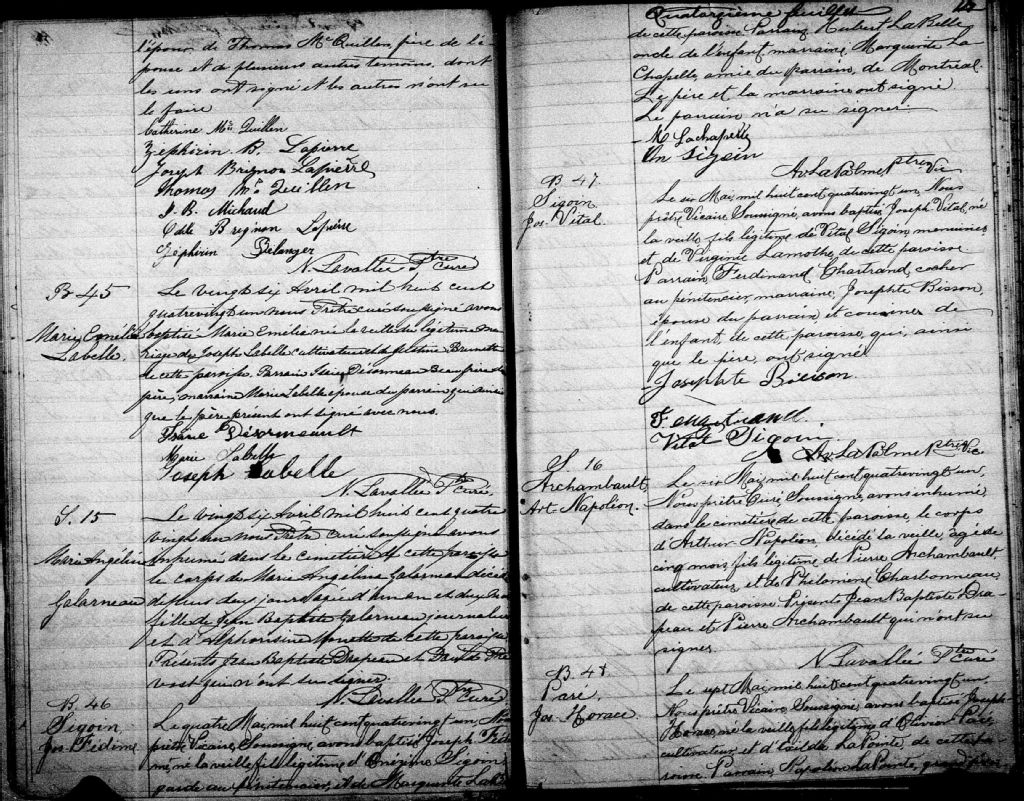 l'époux, de Thomas Mc Quillen, frère de l'é-
pouse et de plusieurs autres témoins, dont
les uns ont signé et les autres n'ont su
le faire
Catherine Mc Quillen
Zéphirin B. Lapierre
Joseph Brignon Lapierre
Thomas Mc Quillen
J. B. Michaud
Brignon Lapierre
Zéphirin Belanger
N. Lavallée Ptre Curé
B 45
Marie Emélie
Labelle.
Le vingt six Avril mil huit cent
quatrevingt un nous Prêtre curé soussigné avons
baptisé Marie Emélie née la veille du légitime ma-
riage de Joseph Labelle cultivateur et de Brunette
de cette paroisse. Parrain Desormeau Beaufrère du
père, marraine Marie Labelle épouse du parrain qui ainsi
que le père présent ont signé avec nous.
Desormeault
Marie Labelle
Joseph Labelle
N. Lavallée Ptre Curé.
S. 15
Marie Angélina
Galarneau
Le vingt six Avril mil huit cent quatre
vingt un nous Prêtre curé soussigné avons
inhumé dans le cimetière de cette paroisse
le corps de Marie Angélina Galarneau décédée
depuis deux jours agée d'un an et
fille de Jean Baptiste Galarneau journalier
et d'Alphonsine de cette paroisse
Présents Jean Baptiste Drapeau et Pré-
vost qui n'ont su signer.
N. Lavallée Ptre Curé
B. 46
Sigoin,
Jos.
Le quatre Mai, mil huit cent quatrevingt un, Nous
prêtre Vicaire, Soussigné, avons baptisé Joseph
né la veille, fils légitime d'Onésime Sigoin,
garde au pénitencier, et de Marguerite LaB
Quatorzième feuillet
de cette paroisse. Parrain, Hubert LaBelle
oncle de l'enfant, marraine, Marguerite La-
Chapelle, amie du parrain, de Montréal.
Le père et la marraine ont signé
Le parrain n'a su signer.
M Lachapelle
On Sigoin
Av. LaPalme Ptre Vic
B 47
Sigoin
Jos. Vital
Le six Mai, mil huit cent quatrevingt un, Nous
prêtre Vicaire Soussigné, avons baptisé Joseph Vital, né
la veille, fils légitime de Vital Sigoin, menuisier
et de Virginie Lamothe, de cette paroisse
Parrain, Ferdinand Chartrand, cocher
au pénitencier, marraine, Josephte Bisson,
épouse du parrain et cousine de
l'enfant, de cette paroisse, qui, ainsi
que le père, ont signé
Josephte Bisson.
Vital Sigoin
Av. LaPalme Ptre Vic
S 16
Archambault,
Art. Napoléon.
Le six Mai, mil huit cent quatrevingt un,
Nous prêtre Curé Soussigné, avons inhumé,
dans le cimetière de cette paroisse, le corps
d'Arthur Napoléon, décédé la veille, agé de
cinq mois, fils légitime de Pierre Archambault
cultivateur, et de Philomène Charbonneau,
de cette paroisse. Présents, Jean Baptiste Dra-
peau et Pierre Archambault qui n'ont su
signer.
N. Lavallée Ptre Curé
B. 48
Paré,
Jos. Horace.
Le sept Mai, mil huit cent quatrevingt un,
Nous prêtre Vicaire, Soussigné, avons baptisé Joseph
Horace, né la veille, fils légitime d'Olivier Paré
cultivateur, et d' LaPointe, de cette pa-
roisse. Parrain, Napoléon LaPointe, grand